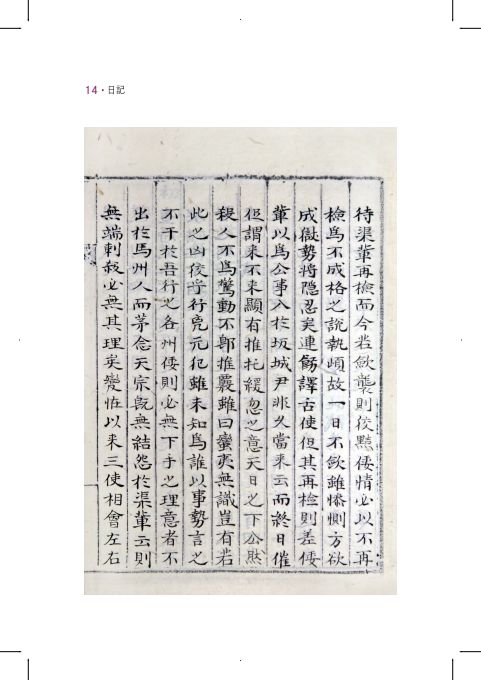 14 · 日記
待渠輩再檢而今若斂襲則狡黠倭情必以不再
檢爲不成格之說執頉故一日不斂雖慘惻方欲
成獄勢將隐忍矣連飭譯舌使促其再檢則差倭
輩以爲公事入於坂城尹非久當来云而終日催
促謂来不来顯有推托緩忽之意天日之下公然
殺人不爲驚動不即推覈雖曰蠻夷無識豈有若
此之凶狡乎行兇元犯雖未知爲誰以事勢言之
不干於吾行之各州倭則必無下手之理意者不
出於馬州人而苐念天宗旣無結怨於渠輩云則
無端刺殺必無其理矣變恠以来三使相會左右